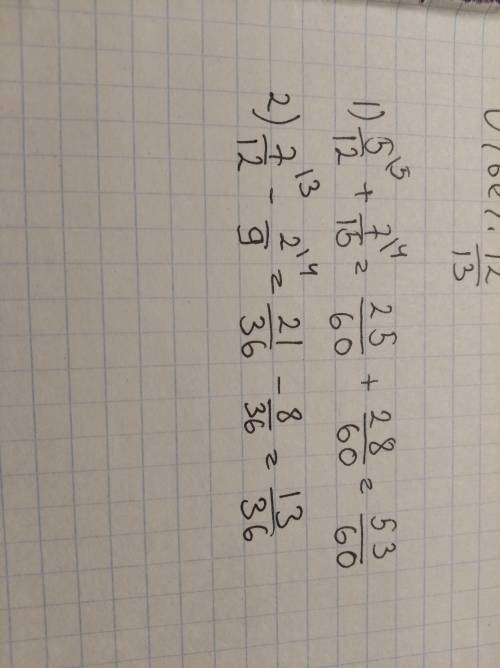 Ответ: 12/13
1) 5\5/12 + 7\4/15 = 25/60 + 28/60 = 53/60
2) 7\3/12 - 2\4/9 = 21/36 - 8/36 = 13/36